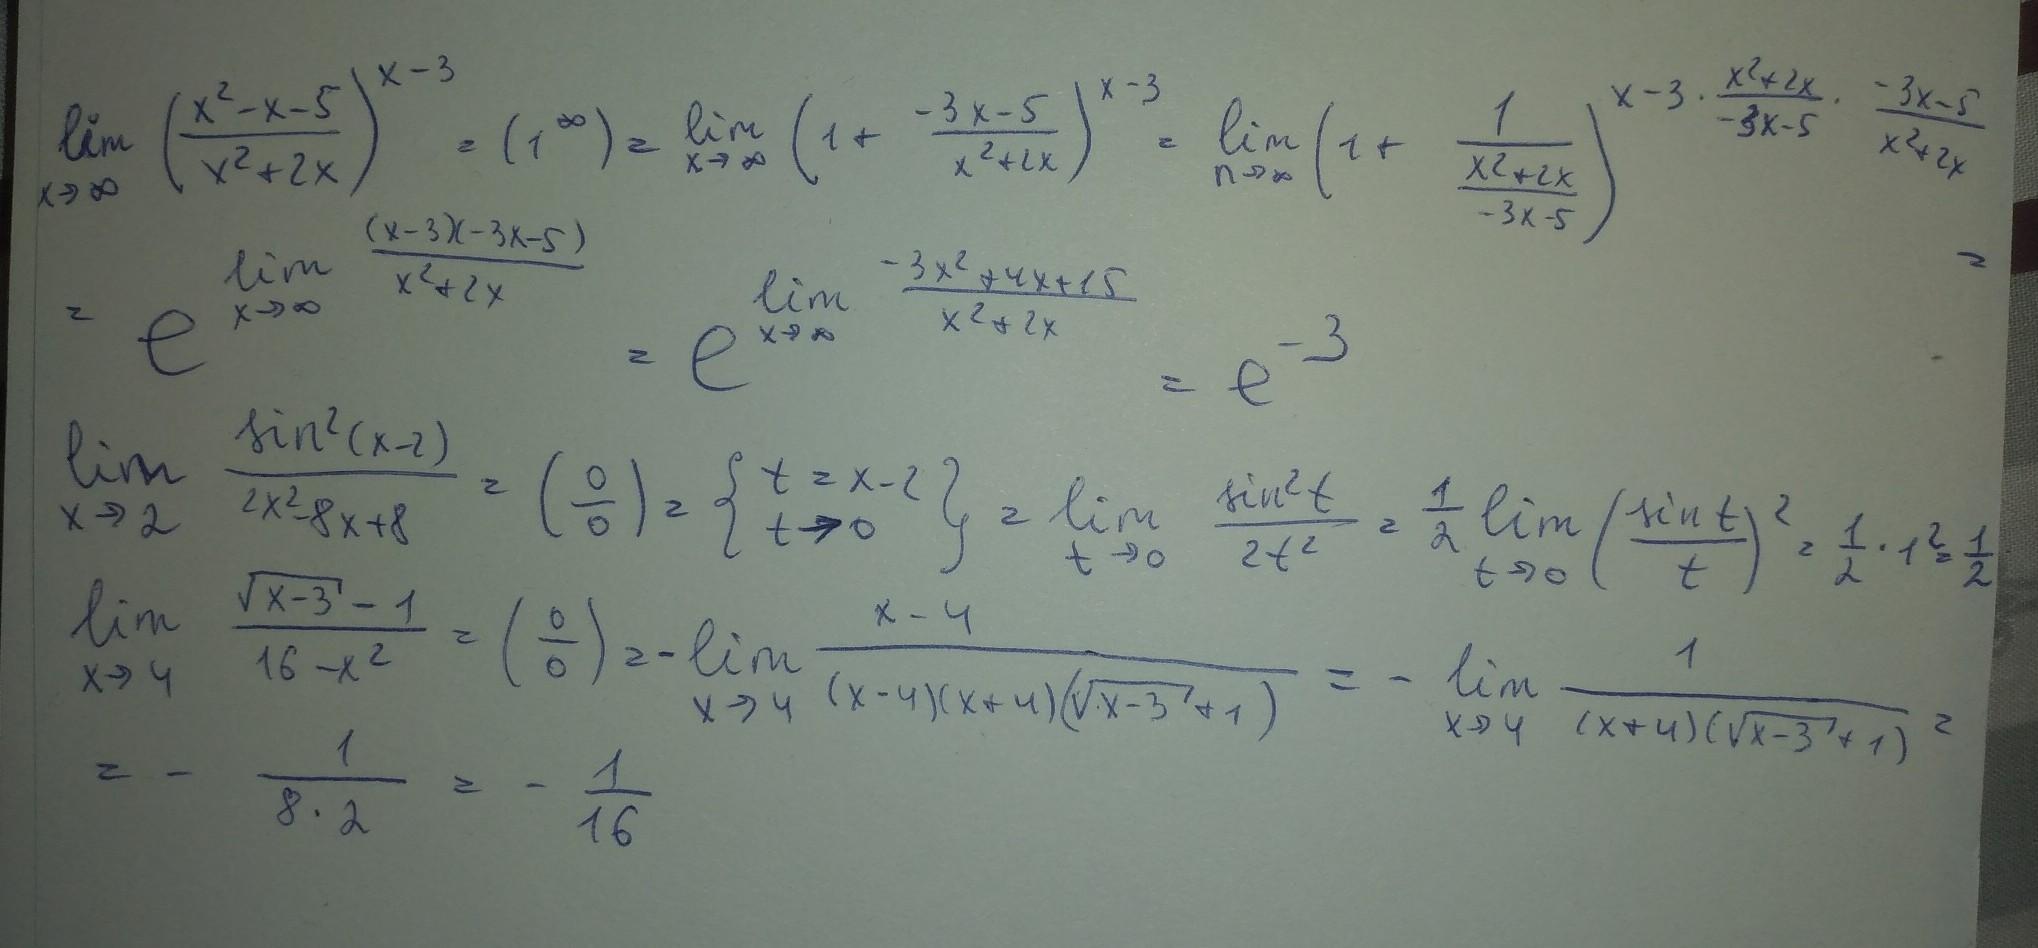 lim x→∞ ((x²-x-5)/(x²+2x))^(x-3) = (1^∞) = lim x→∞ (1 + (-3x-5)/(x²+2x))^(x-3) = lim n→∞ (1 + 1/((x²+2x)/(-3x-5)))^(x-3 · (x²+2x)/(-3x-5) · (-3x-5)/(x²+2x)) =
= e^(lim x→∞ ((x-3)(-3x-5))/(x²+2x)) = e^(lim x→∞ (-3x²+4x+15)/(x²+2x)) = e^(-3)
lim x→2 sin²(x-2)/(2x²-8x+8) = (0/0) = {t=x-2 t→0} = lim t→0 sin²t/2t² = 1/2 lim t→0 (sin t/t)² = 1/2 · 1² = 1/2
lim x→4 (√(x-3) - 1)/(16-x²) = (0/0) = - lim x→4 (x-4)/((x-4)(x+4)(√(x-3)+1)) = - lim x→4 1/((x+4)(√(x-3)+1)) =
= - 1/(8·2) = - 1/16